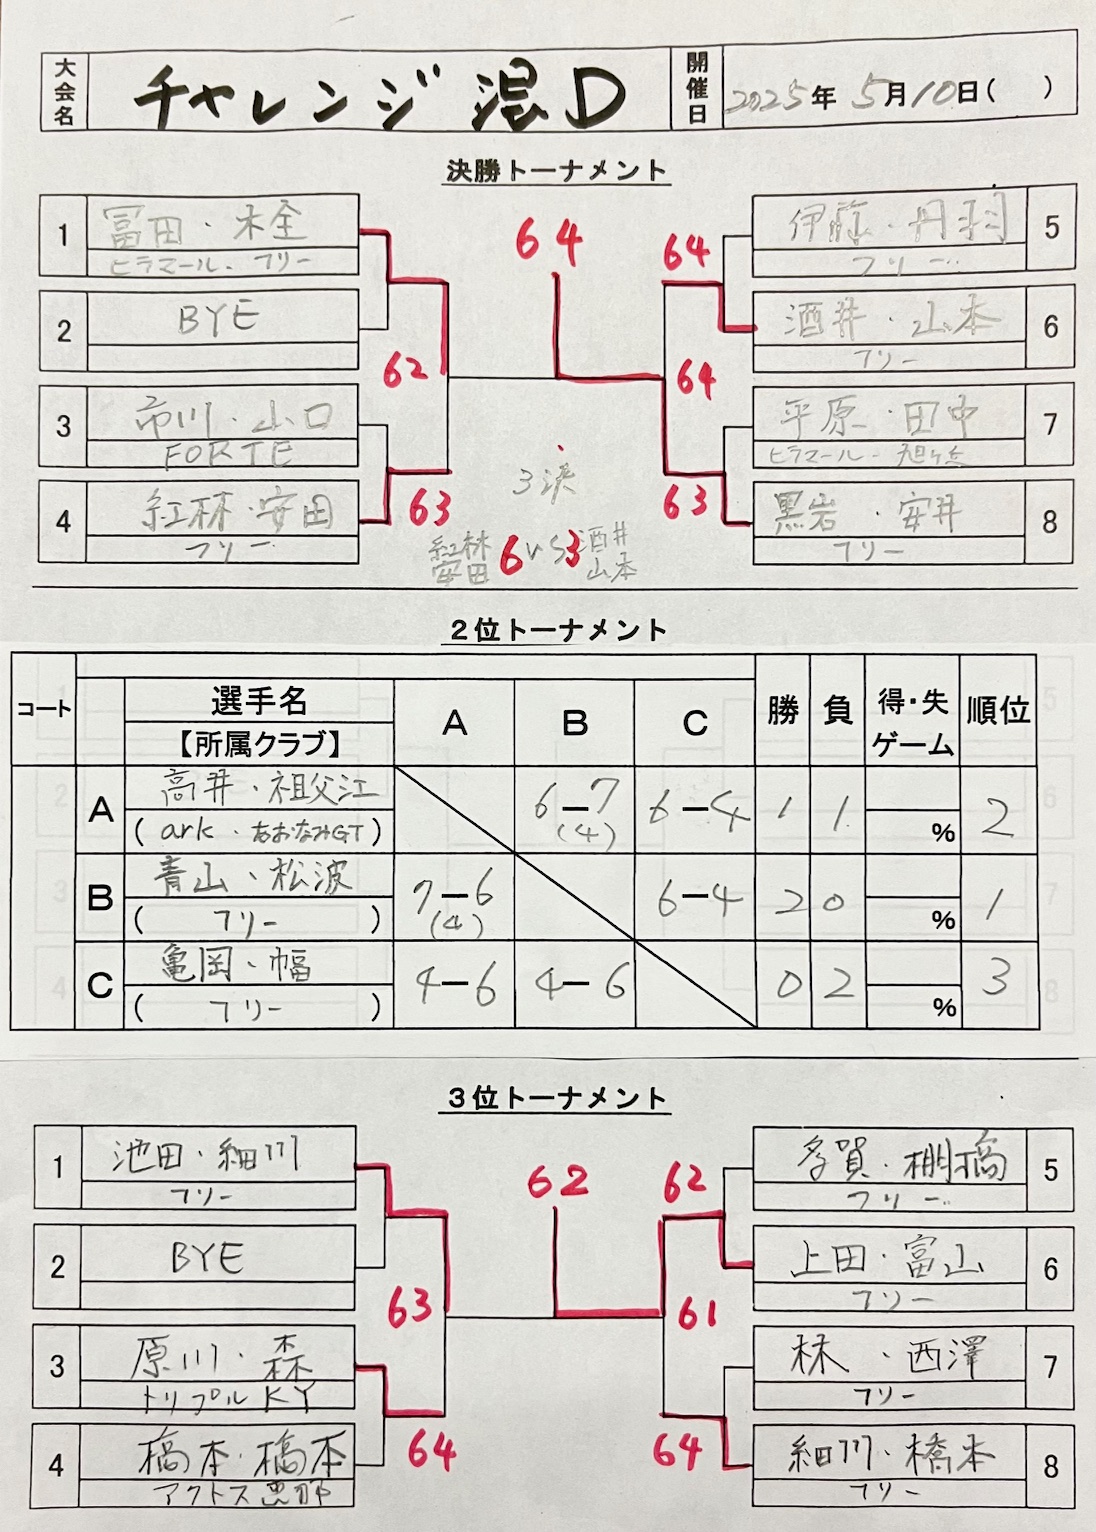 大会名 チャレンジ 混D 開催日 2025年 5月10日( )
決勝トーナメント
1 冨田・木全
ヒラマール・フリー
2 BYE
3 市川・山口
FORTE
4 紅林・安田
フリー
62
63
64
5 伊藤・丹羽
フリー
6 酒井・山本
フリー
7 平原・田中
ヒラマール・
8 黒岩・安井
フリー
64
64
63
3決
紅林 安田 6 VS 3 酒井 山本
2位トーナメント
コート 選手名 A B C 勝 負 得・失 ゲーム 順位
【所属クラブ】
A 高井・祖父江 6-7 (4) 6-4 1 1 % 2
(ark・あおなみGT)
B 青山・松波 7-6 (4) 6-4 2 0 % 1
(フリー)
C 亀岡・幅 4-6 4-6 0 2 % 3
(フリー)
3位トーナメント
1 池田・細川
フリー
2 BYE
3 原川・森
トリプルKY
4 橋本・橋本
アクトス恵那
63
64
62
5 多賀・棚橋
フリー
6 上田・富山
フリー
7 林・西澤
フリー
8 細川・橋本
フリー
62
61
64